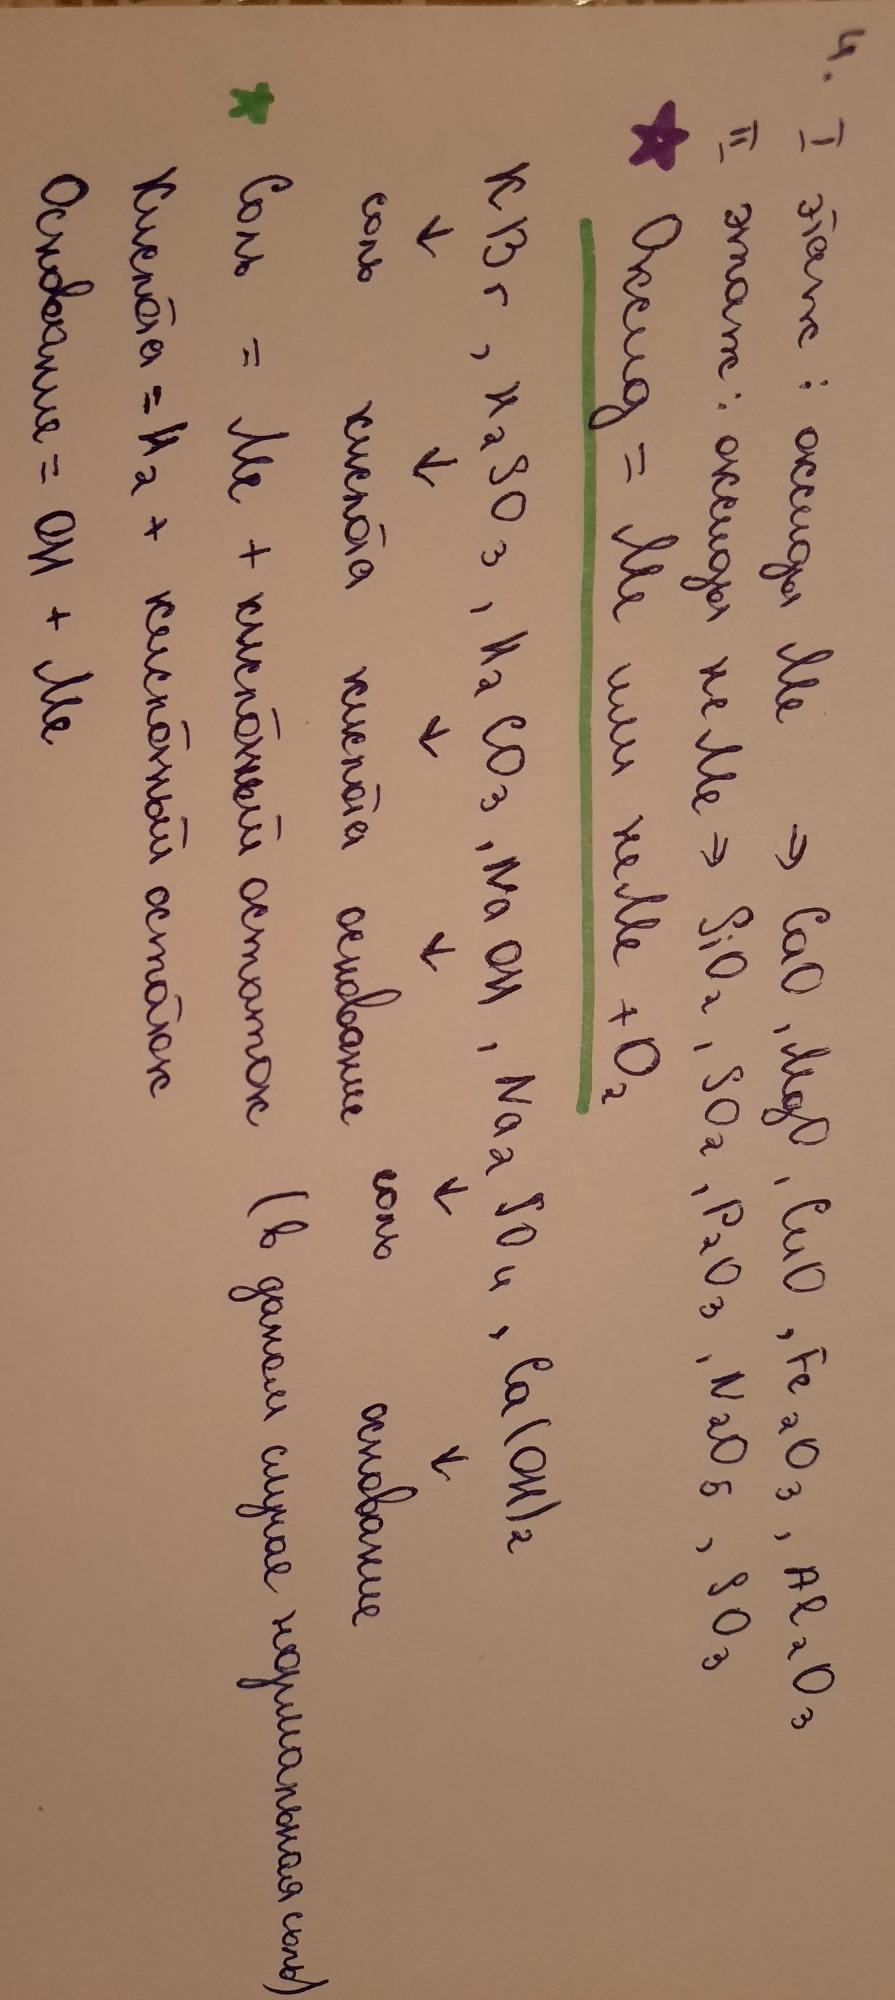 4. I этаж : оксиды Me ⇒ CaO, MgO, CuO, Fe2O3, Al2O3
II этаж : оксиды неMe ⇒ SiO2, SO2, P2O3, N2O5, SO3
Оксид = Me или неMe + O2
KBr, H2SO3, H2CO3, NaOH, Na2SO4, Ca(OH)2
↓ ↓ ↓ ↓ ↓ ↓
соль кислота кислота основание соль основание
Соль = Me + кислотный остаток (в даном случае нормальная соль)
Кислота = H2 + кислотный остаток
Основание = OH + Me